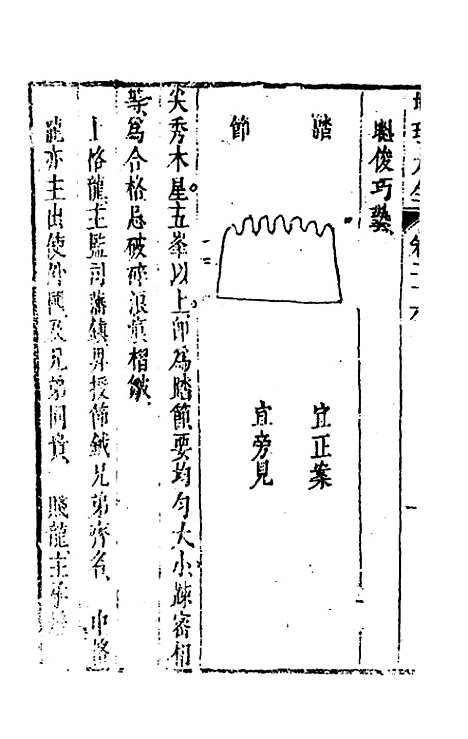 魁俊巧藝
踏節
宜正案
宜旁見
尖秀木星五峯以上即為踏節要均勻大小踈密相
等為合格忌破碎浪痕摺皺
上格龍主監司藩鎮昇授節鉞兄弟齊名 中格
龍亦主出使外國及兄弟同貴 賤龍主